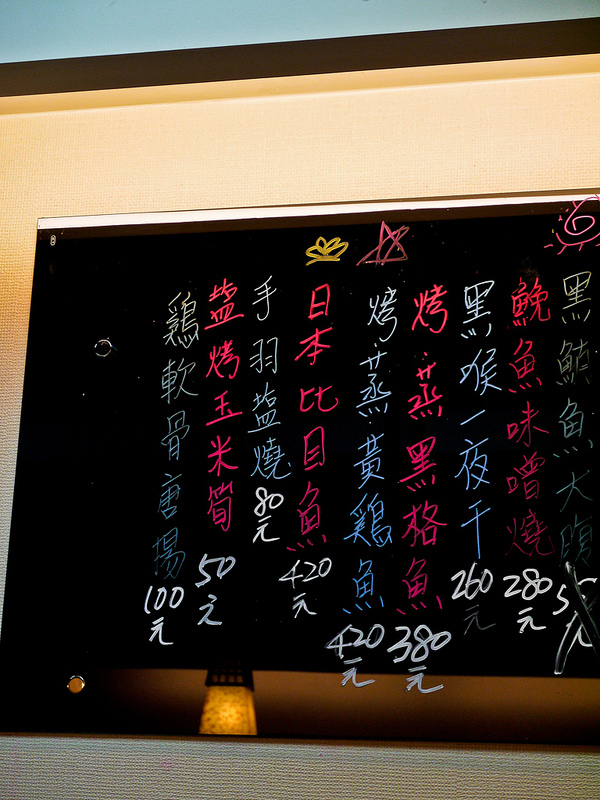 黑鮪魚大腹
鮸魚味噌燒 280元
黑喉一夜干 260元
烤.蒸黑格魚 380元
烤.蒸黃鷄魚 420元
日本比目魚 420元
手羽塩燒 80元
塩烤玉米筍 50元
鷄軟骨唐揚 100元